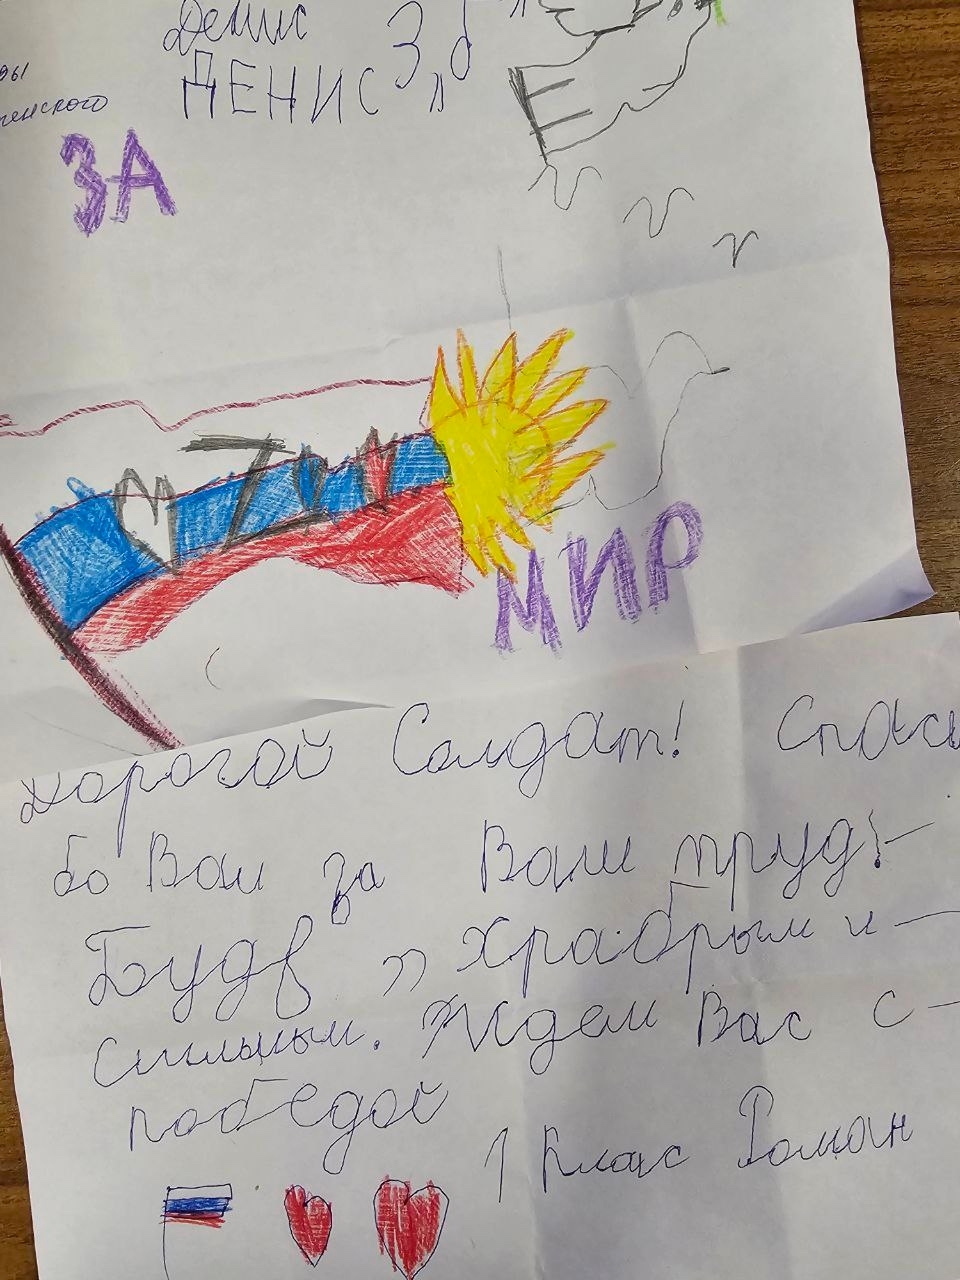 Денис
ДЕНИС 3 "б"
ЗА
Z
МИР
Дорогой Солдат! Спаси
бо Вам за Ваш труд!
Будв Храбрым и
Сильным. Ждем Вас с
победой
1 Клас Роман